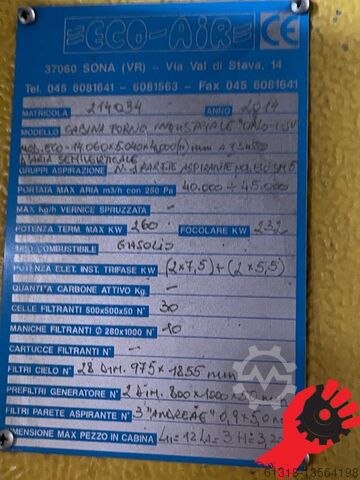 ECO-AIR CE
37060 SONA (VR) - Via Val di Stava, 14
Tel. 045 6081641 - 6081563 - Fax 045 6081641
MATRICOLA 214034 ANNO 2014
MODELLO CABINA FORNO INDUSTRIALE
ARIA SEMIVERTICALE
GRUPPI ASPIRAZIONE N.1 PARETE ASPIRANTE
PORTATA MAX ARIA m3/h con 250 Pa 40.000 ÷ 45.000
MAX kg/h VERNICE SPRUZZATA -
POTENZA TERM. MAX KW 260 FOCOLARE KW 232
TIPO COMBUSTIBILE GASOLIO
POTENZA ELET. INST. TRIFASE KW (2x7,5)+(2x5,5)
QUANTITA' CARBONE ATTIVO Kg. -
CELLE FILTRANTI 500x500x50 N° 30
MANICHE FILTRANTI Ø 280x1000 N° 10
CARTUCCE FILTRANTI N° -
FILTRI CIELO N° 28 DIM. 975 x 1855 mm
PREFILTRI GENERATORE N° 2 DIM. 800x1000x50 mm
FILTRI PARETE ASPIRANTE N° 3 "ANDREAE" 0,9x5,0m
DIMENSIONE MAX PEZZO IN CABINA
61318-13564198